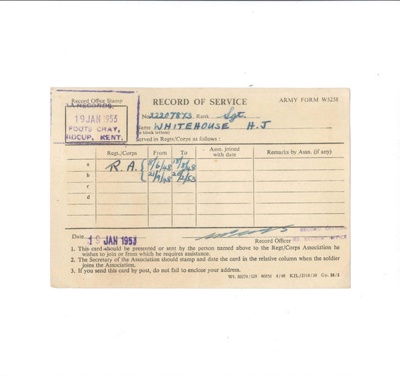 Record Office Stamp
RECORD OF SERVICE
ARMY FORM W5258
R.A. RECORDS,
19 JAN 1953
FOOTS CRAY,
SIDCUP, KENT.
No. 22207873 Rank Sgt.
Name WHITEHOUSE H.J
(in block letters)
Served in Regts/Corps as follows :
Regt./Corps
From
To
Assn. joined with date
Remarks by Assn. (if any)
a R.A.
b
c
d
Date 19 JAN 1953
Record Officer
1. This card should be presented or sent by the person named above to the Regt/Corps Association he
wishes to join or from which he requires assistance.
2. The Secretary of the Association should stamp and date the card in the relative column when the soldier
joins the Association.
3. If you send this card by post, do not fail to enclose your address.